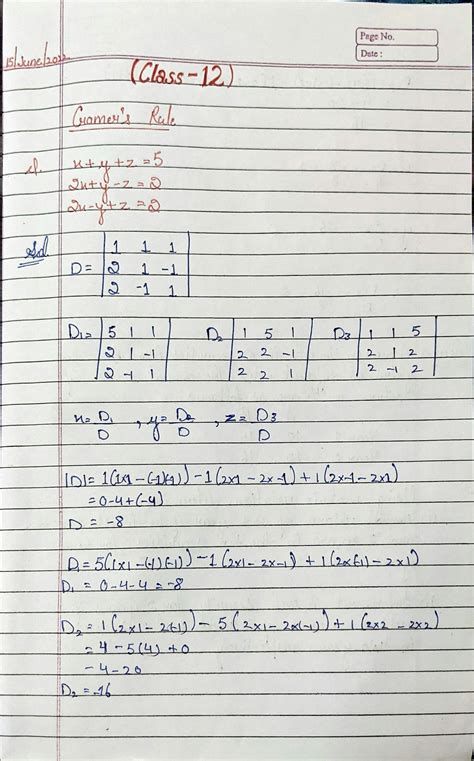 Page No.
Date :
15/June/2022
(Class-12)
Cramer's Rule
1. x+y+z=5
2x+y-z=2
2x-y+z=2
Sol
D= | 1 1 1 |
| 2 1 -1 |
| 2 -1 1 |
D1= | 5 1 1 | D2 | 1 5 1 | D3 | 1 1 5 |
| 2 1 -1 | | 2 2 -1 | | 2 1 2 |
| 2 -1 1 | | 2 2 1 | | 2 -1 2 |
x=D1/D , y=D2/D , z=D3/D
|D|=1(1x1-(-1)(-1))-1(2x1-2x-1)+1(2x-1-2x1)
=0-4+(-4)
D = -8
D1=5(1x1-(-1)(-1))-1(2x1-2x-1)+1(2x(-1)-2x1)
D1 = 0-4-4=-8
D2=1(2x1-2(-1))-5(2x1-2x(-1))+1(2x2-2x2)
=4-5(4)+0
-4-20
D2=-16